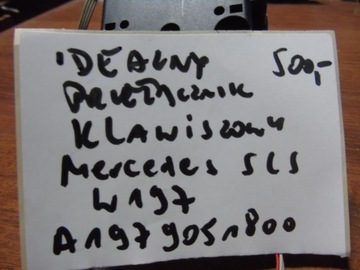 IDEALNY 500,-
PRZEŁĄCZNIK
KLAWISZOWY
Mercedes SLS
W197
A1979051800